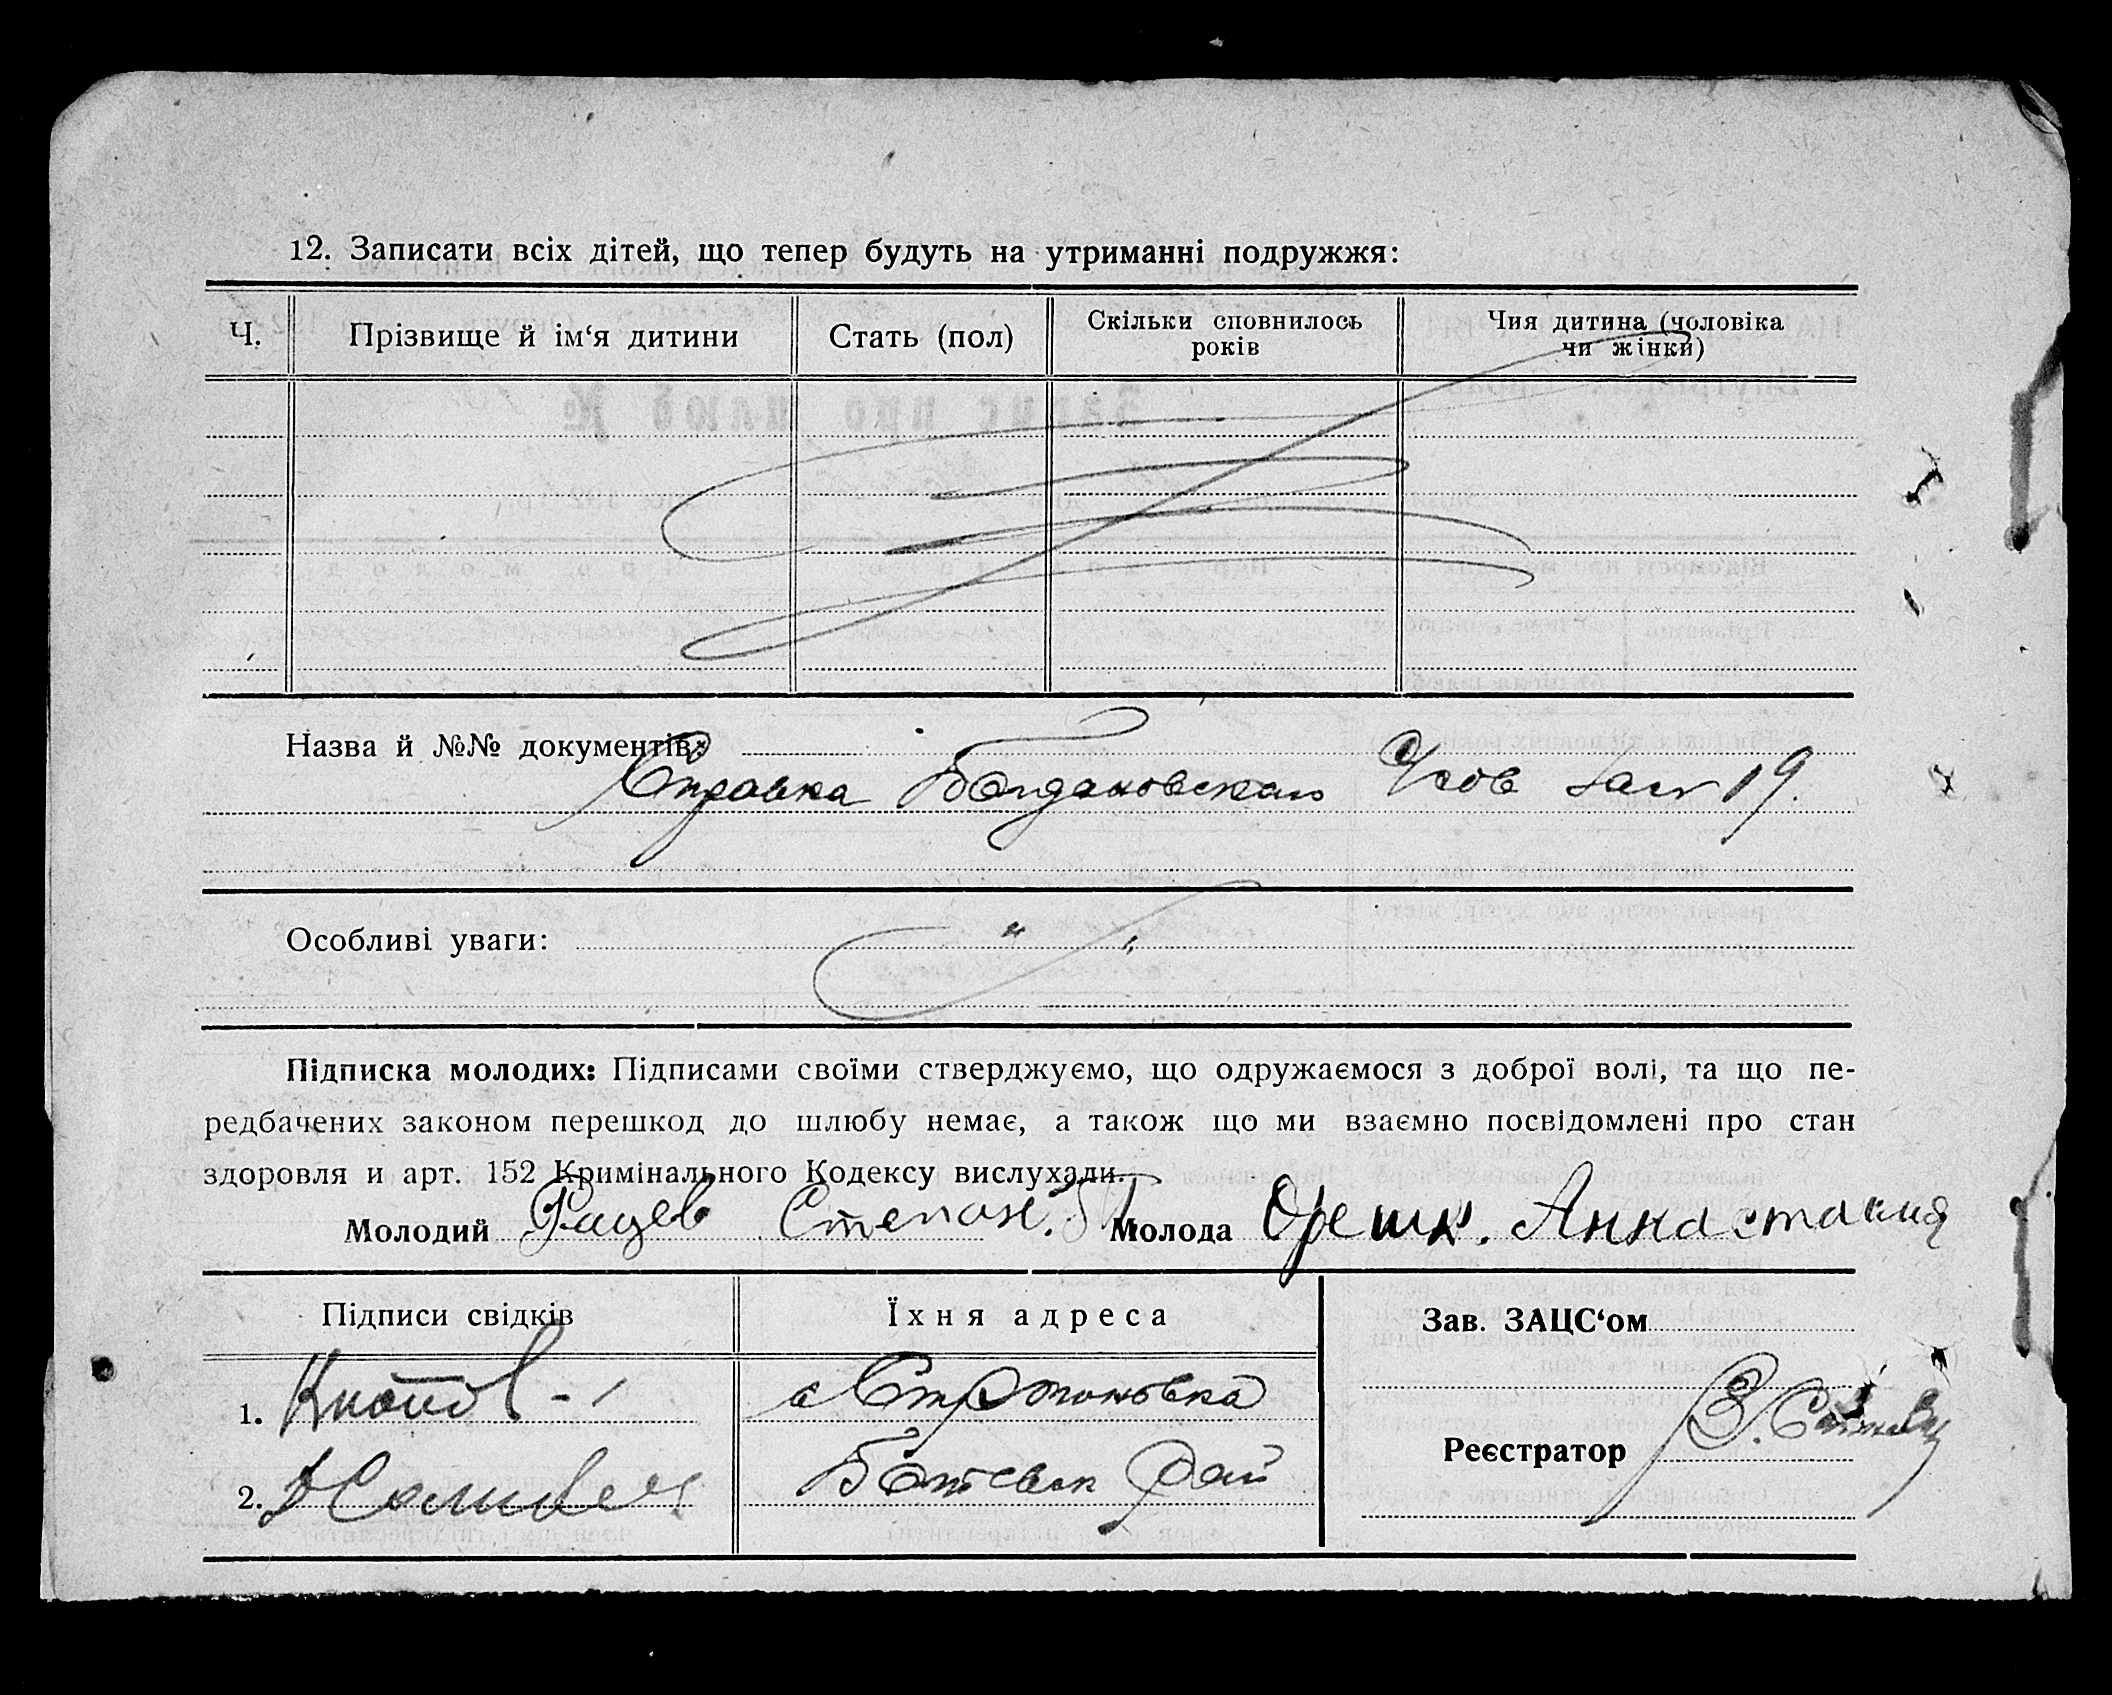 12. Записати всіх дітей, що тепер будуть на утриманні подружжя:
Ч. Прізвище й ім‘я дитини Стать (пол) Скільки сповнилось років Чия дитина (чоловіка чи жінки)
Назва й №№ документів:
Справка Богдановская 19.
Особливі уваги: " "
Підписка молодих: Підписами своїми стверджуємо, що одружаємося з доброї волі, та що пе-
редбачених законом перешкод до шлюбу немає, а також що ми взаємно посвідомлені про стан
здоровля и арт. 152 Кримінального Кодексу вислухали.
Молодий Рацев Степан. Молода Орешк. Аннастасия
Підписи свідків Їхня адреса Зав. ЗАЦС‘ом
1.
Реєстратор В.
2.